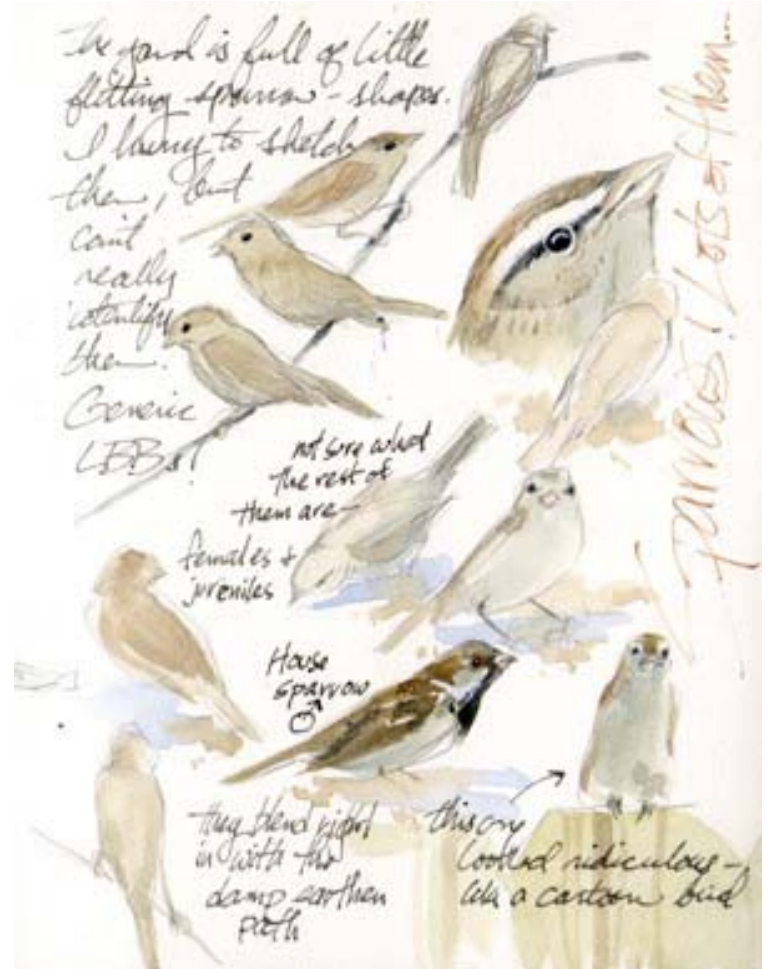 The yard is full of little
flitting sparrow-shapes.
I hurry to sketch
them, but
can't
really
identify
them.
Generic
LBBs!
Sparrows! Lots of them...
not sure what
the rest of
them are—
females &
juveniles
House
sparrow
♂
they blend right
in with the
damp earthen
path
this one
looked ridiculous—
like a cartoon bird